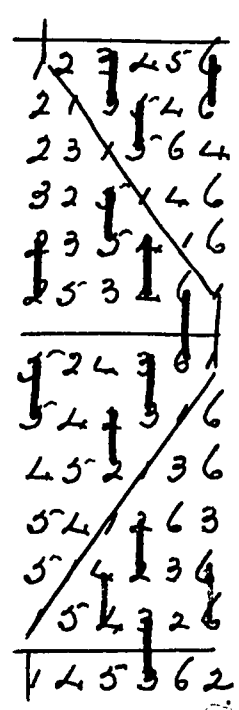 1 2 3 4 5 6
2 1 3 5 4 6
2 3 1 5 6 4
3 2 5 1 4 6
2 3 5 4 1 6
2 5 3 4 6 1
5 2 4 3 6 1
5 4 2 3 1 6
4 5 2 1 3 6
5 4 1 2 6 3
5 1 4 2 3 6
1 5 4 3 2 6
1 4 5 3 6 2